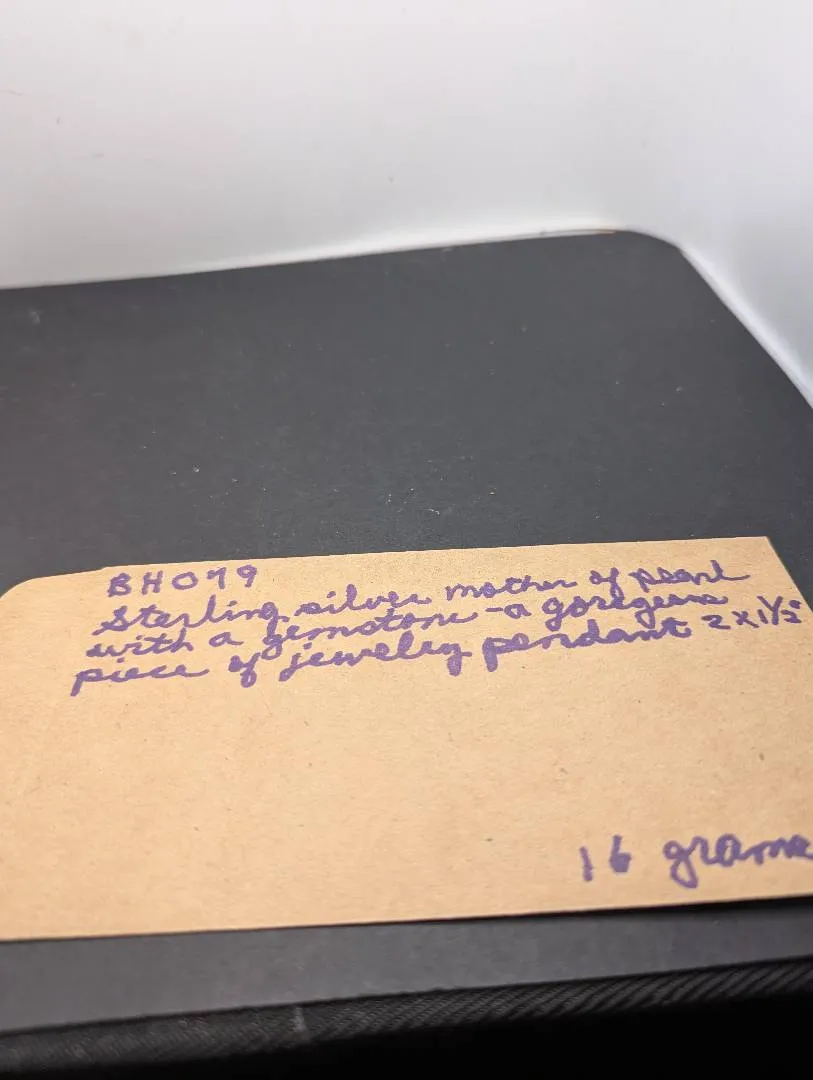 BH079
Sterling silver mother of pearl
with a gemstone - a goregeous
piece of jewelry pendant 2 x 1½"
16 grams